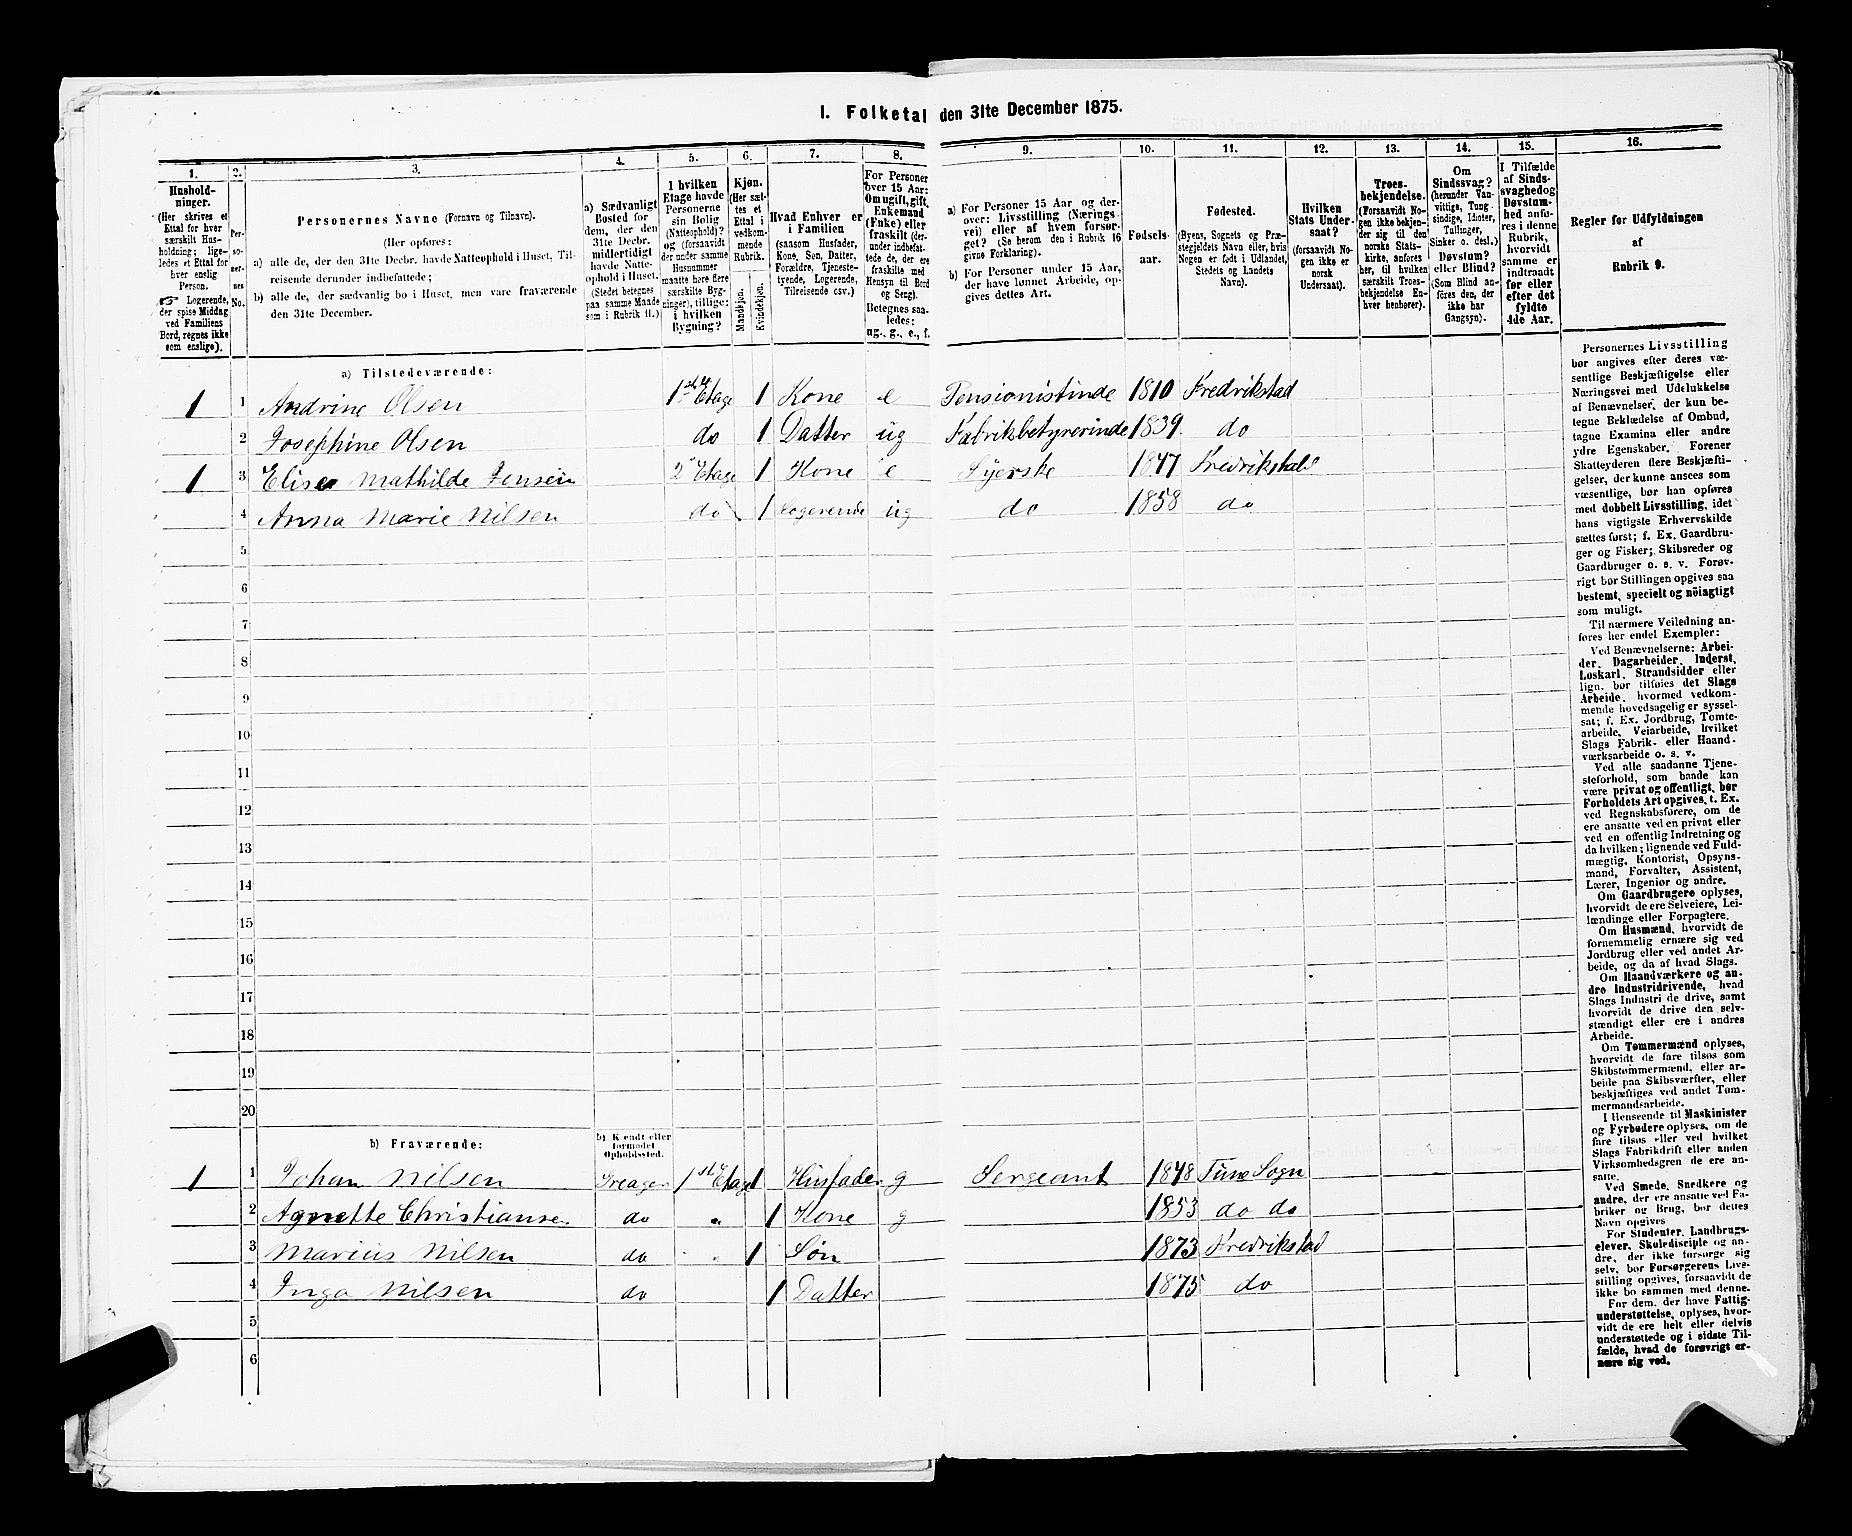 I. Folketal den 31te December 1875.
1. 2. 3. 4. 5. 6. 7. 8. 9. 10. 11. 12. 13. 14. 15. 16.
Hushold-
ninger.
(Her skrives et
Ettal for hver
særskilt Hus-
holdning; lige-
ledes et Ettal for
hver enslig
Person.
☞ Logerende,
der spise Middag
ved Familiens
Bord, regnes ikke
som enslige).
Per-
so-
ner-
nes
No.
Personernes Navne (Fornavn og Tilnavn).
(Her opføres:
a) alle de, der den 31te Decbr. havde Natteophold i Huset, Til-
reisende derunder indbefattede;
b) alle de, der sædvanlig bo i Huset, men vare fraværende
den 31te December.
a) Sædvanligt
Bosted for
dem, der den
31te Decbr.
midlertidigt
havde Natte-
ophold i Huset.
(Stedet betegnes
paa samme Maade
som i Rubrik 11.)
I hvilken
Etage havde
Personerne
sin Bolig
(Natteophold)?
og (forsaavidt
der under samme
Husnummer
maatte høre flere
særskilte Byg-
ninger), tillige:
i hvilken
Bygning?
Kjøn.
(Her sæt-
tes et
Ettal i
vedkom-
mende
Rubrik.
Mandkjøn.
Kvindekjøn.
Hvad Enhver er
i Familien
(saasom Husfader,
Kone, Søn, Datter,
Forældre, Tjeneste-
tyende, Logerende,
Tilreisende csv.)
For Personer
over 15 Aar:
Om ugift, gift,
Enkemand
(Enke) eller
fraskilt (der-
under indbefat-
tede de, der ere
fraskilte med
Hensyn til Bord
og Seng).
Betegnes saa-
ledes:
ug., g., e., f.
a) For Personer 15 Aar og der-
over: Livsstilling (Nærings-
vei) eller af hvem forsør-
get? (Se herom den i Rubrik 16
givne Forklaring).
b) For Personer under 15 Aar,
der have lønnet Arbeide, op-
gives dettes Art.
Fødsels-
aar.
Fødested.
(Byens, Sognets og Præ-
stegjeldets Navn eller, hvis
Nogen er født i Udlandet,
Stedets og Landets
Navn).
Hvilken
Stats Under-
saat?
(forsaavidt No-
gen ikke er
norsk
Undersaat).
Troes-
bekjendelse.
(Forsaavidt No-
gen ikke bekjen-
der sig til den
norske Stats-
kirke, anføres
her, til hvilken
særskilt Troes-
bekjendelse En-
hver henhører).
Om
Sindssvag?
(herunder Van-
vittige, Tung-
sindige, Idioter,
Tullinger,
Sinker o. desl.)
Døvstum?
eller Blind?
(Som Blind an-
føres den, der
ikke har
Gangsyn).
I Tilfælde
af Sinds-
svaghed og
Døvstum-
hed anfø-
res i denne
Rubrik,
hvorvidt
samme er
indtraadt
før eller
efter det
fyldte
4de Aar.
Regler for Udfyldningen
af
Rubrik 9.
a) Tilstedeværende:
1 1 Andrine Olsen 1ste Etage 1 Kone e Pensionistinde 1810 Fredrikstad
2 Josephine Olsen do 1 Datter ug Fabriksbetyrerinde 1839 do
1 3 Elise Mathilde Jensen 2 Etage 1 Kone e Syerske 1847 Fredrikstad
4 Anna Marie Nilsen do 1 Logerende ug do 1858 do
5
6
7
8
9
10
11
12
13
14
15
16
17
18
19
20
b) Fraværende:
b) Kjendt eller
formodet
Opholdssted.
1 1 Johan Nilsen Greager 1ste Etage 1 Husfader g Sergeant 1848 Tune Sogn
2 Agnette Christiansen do " 1 Kone g 1853 do do
3 Marius Nilsen do " 1 Søn 1873 Fredrikstad
4 Inga Nilsen do 1 Datter 1875 do
5
6
Personernes Livsstilling
bør angives efter deres væ-
sentlige Beskjæftigelse eller
Næringsvei med Udelukkelse
af Benævnelser, der kun be-
tegne Beklædelse af Ombud,
tagne Examina eller andre
ydre Egenskaber. Forener
Skatteyderen flere Beskjæfti-
gelser, der kunne ansees som
væsentlige, bør han opføres
med dobbelt Livsstilling, idet
hans vigtigste Erhvervskilde
sættes først; f. Ex. Gaardbru-
ger og Fisker; Skibsreder og
Gaardbruger o. s. v. Forøv-
rigt bør Stillingen opgives saa
bestemt, specielt og nöiagtigt
som muligt.
Til nærmere Veiledning an-
føres her endel Exempler:
Ved Benævnelserne: Arbei-
der, Dagarbeider, Inderst,
Løskarl, Strandsidder eller
lign. bør tilføies det Slags
Arbeide, hvormed vedkom-
mende hovedsagelig er syssel-
sat; f. Ex. Jordbrug, Tomte-
arbeide, Veiarbeide, hvilket
Slags Fabrik- eller Haand-
værksarbeide o. s. v.
Ved alle saadanne Tjene-
steforhold, som baade kan
være privat og offentligt, bør
Forholdets Art opgives, t. Ex.
ved Regnskabsførere, om de
ere ansatte ved en privat eller
ved en offentlig Indretning og
da hvilken; lignende ved Fuld-
mægtig, Kontorist, Opsyns-
mand, Forvalter, Assistent,
Lærer, Ingeniør og andre.
Om Gaardbrugere oplyses,
hvorvidt de ere Selveiere, Lei-
lændinge eller Forpagtere.
Om Husmænd, hvorvidt de
fornemmelig ernære sig ved
Jordbrug eller ved andet Ar-
beide, og da af hvad Slags.
Om Haandværkere og an-
dre Industridrivende, hvad
Slags Industri de drive, samt
hvorvidt de drive den selv-
stændigt eller ere i andres
Arbeide.
Om Tømmermænd oplyses,
hvorvidt de fare tilsøs som
Skibstømmermænd, eller ar-
beide paa Skibsværfter, eller
beskjæftiges ved andet Tøm-
mermandsarbeide.
I Henseende til Maskinister
og Fyrbødere oplyses, om de
fare tilsøs eller ved hvilket
Slags Fabrikdrift eller anden
Virksomhedsgren de ere an-
satte.
Ved Smede, Snedkere og
andre, der ere ansatte ved Fa-
briker og Brug, bør dettes
Navn opgives
For Studenter, Landbrugs-
elever, Skoledisciple og an-
dre, der ikke forsørge sig
selv, bør Forsørgerens Livs-
stilling opgives, forsaavidt de
ikke bo sammen med denne.
For dem, der have Fattig-
understøttelse, oplyses, hvor-
vidt de ere helt eller delvis
understøttede og i sidste Til-
fælde, hvad de forøvrigt er-
nære sig ved.